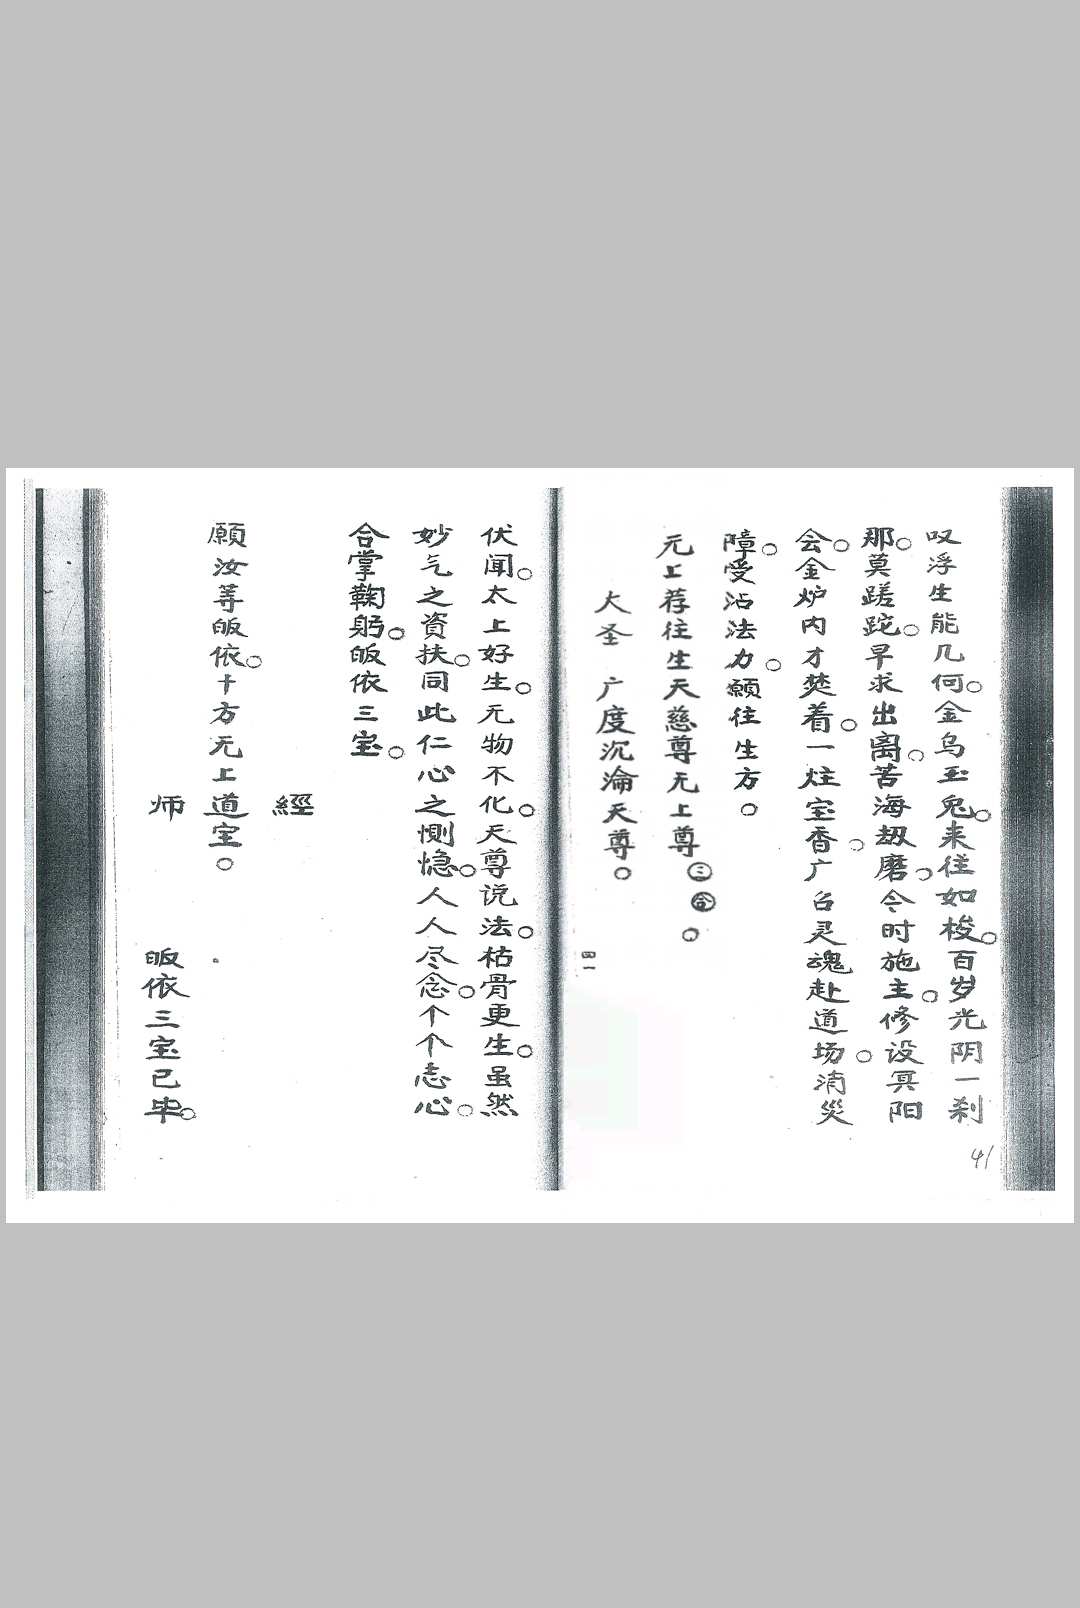 叹浮生能几何。金乌玉兔。来往如梭。百岁光阴一刹
那。莫蹉跎。早求出离。苦海劫磨。今时施主。修设冥阳
会。金炉内才焚着。一炷宝香。广召灵魂赴道场。消災
障。受沾法力。願往生方。
元上荐往生天慈尊无上尊㊂㊔。
大圣 广度沉淪天尊。
四一
41
伏闻。太上好生。无物不化。天尊说法。枯骨更生。虽然
妙气之資扶。同此仁心之惻隐。人人尽念。个个志心。
合掌鞠躬。皈依三宝。
經
願汝等皈依。十方无上道宝。
师 皈依三宝已毕。